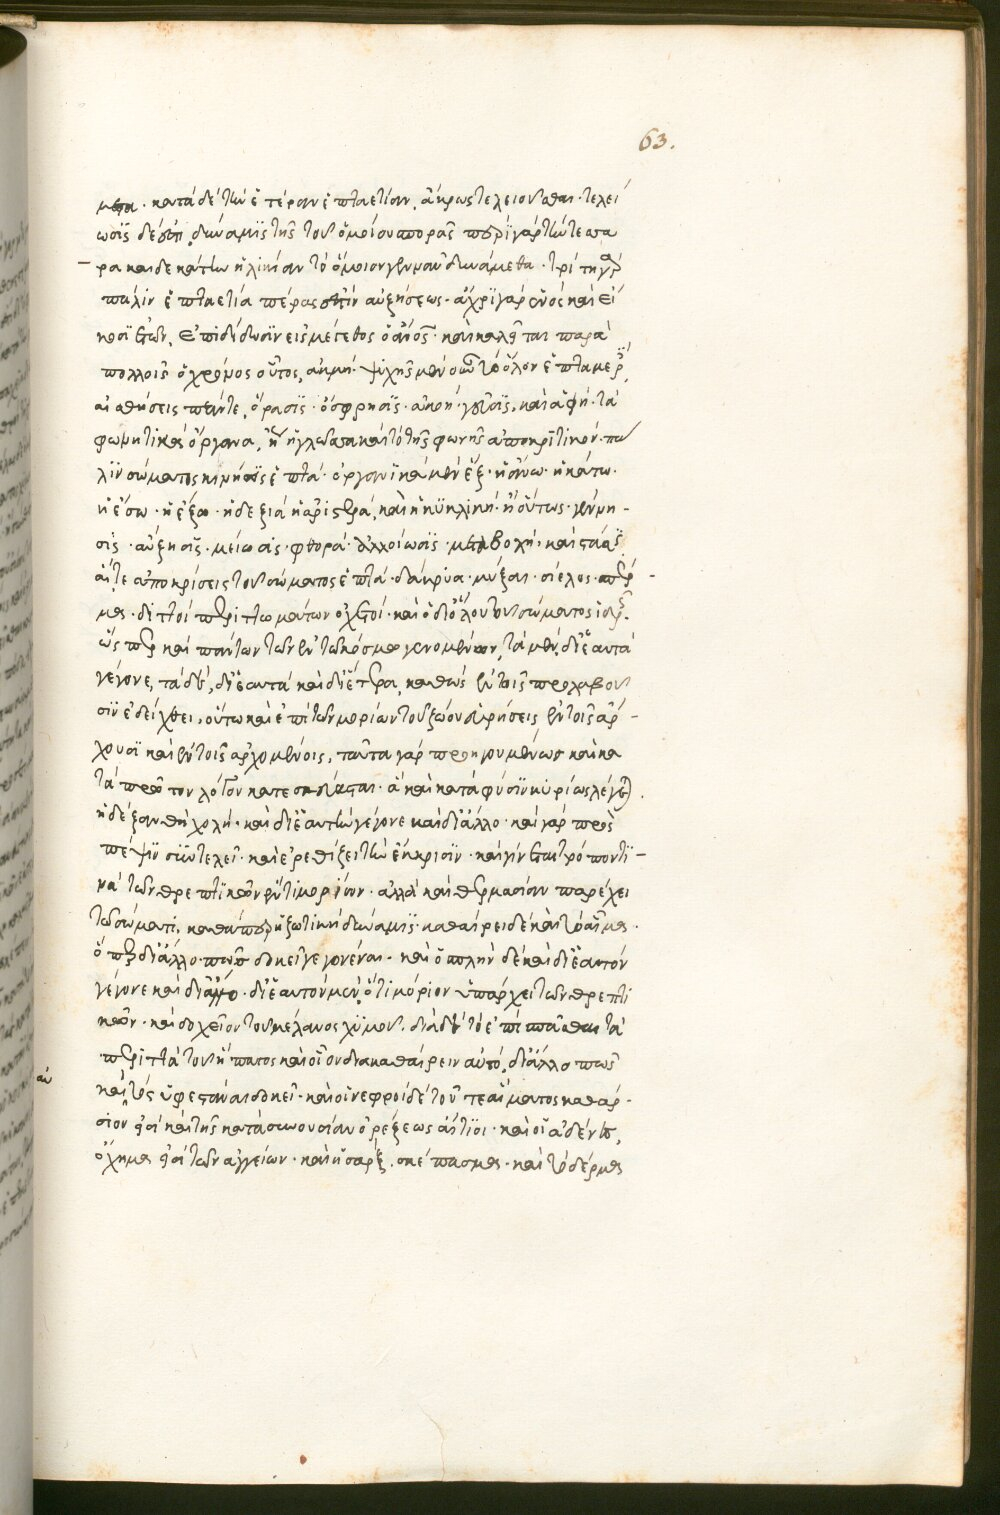 63.
μετα. κατὰ δὲ τὴν ἑτέραν ἑπταετίαν, ἄκρως τελειοῦσθαι. τελεί
ωσις δέ ἐστι δύναμις τῆς τοῦ ὁμοίου σπορᾶς περὶ γὰρ τὴν τεσσα
ρακαιδεκάτην ἡλικίαν τὸ ὅμοιον γεννᾶν δυνάμεθα. τρίτη γὰρ
πάλιν ἑπταετία πέρας ἐστὶν αὐξήσεως. ἄχρι γὰρ ἑνὸς καὶ εἴ
κοσι ἐτῶν, ἐπιδίδωσιν εἰς μέγεθος ὁ ἄνος. καὶ καλεῖται παρὰ
πολλοῖς ὁ χρόνος οὗτος, ἀκμή. ψυχῆς μὲν οὖν τὸ ὅλον ἑπταμερ
αἰσθήσεις πέντε, ὅρασις. ὄσφρησις. ἀκοή. γεῦσις. καὶ ἁφή. τὰ
φωνητικὰ ὄργανα, ἢ ἡ γλῶσσα καὶ τὸ τῆς φωνῆς ἀποκριτικόν. πά
λιν σώματος κινήσεις ἑπτά. ὀργανικαὶ μὲν ἕξ. ἡ ἄνω. ἡ κάτω.
ἡ ἔσω. ἡ ἔξω. ἡ δεξιά ἡ ἀριστερά, καὶ ἡ κυκλική. ἢ οὕτως. γέννη-
σις. αὔξησις. μείωσις. φθορά. ἀλλοίωσις. μεταβολή. καὶ στάσις
αἵ τε ἀποκρίσεις τοῦ σώματος ἑπτά. δάκρυα. μύξαι. σίελος. σπέρ-
μα. διττοὶ περιττωμάτων ὀχετοί. καὶ ὁ δι' ὅλου τοῦ σώματος ἱδρ.
ὥσπερ καὶ πάντων τῶν ἐν τῷ κόσμῳ γενομένων, τὰ μὲν, δι' ἑαυτὰ
γέγονε, τὰ δὲ, δι' ἑαυτὰ καὶ δι' ἕτερα, καθὼς ἐν τοῖς προλαβοῦ
σιν ἐδείχθει, οὕτω καὶ ἐπὶ τῶν μορίων τοῦ ζώου εὑρήσεις ἐν τοῖς ἄρ-
χουσι καὶ ἐν τοῖς ἀρχομένοις, ταῦτα γὰρ προηγουμένως καὶ κα
τὰ πρῶτον λόγον κατεσκεύασται. ἃ καὶ κατὰ φύσιν κυρίως λέγεται.
ἡ δὲ ξανθὴ χολή. καὶ δι' ἑαυτὴν γέγονε καὶ δι' ἄλλο. καὶ γὰρ πρὸς
πέψιν συντελεῖ. καὶ ἐρεθίζει τὴν ἔκκρισιν. καὶ γίνεται τρόπον τι-
νὰ τῶν θρεπτικῶν ἕν τι μορίων. ἀλλὰ καὶ θερμασίαν παρέχει
τῷ σώματι, καθάπερ ἡ ζωτικὴ δύναμις. καθαίρει δὲ καὶ τὸ αἷμα.
ὅπερ δι' ἄλλο πως δοκεῖ γεγονέναι. καὶ ὁ σπλὴν δὲ καὶ δι' ἑαυτὸν
γέγονε καὶ δι' ἄλλο. δι' ἑαυτὸν μὲν, ὅτι μόριον ὑπάρχει τῶν θρεπτι
κῶν. καὶ δοχεῖον τοῦ μέλανος χυμοῦ. διὰ δὲ τὸ ἐπισπᾶσθαι τὰ
περιττὰ τοῦ ἥπατος καὶ οἷον διακαθαίρειν αὐτό, δι' ἄλλο πως
καὶ τὸς ὑφεστάναι δοκεῖ. καὶ οἱ νεφροὶ δὲ τοῦ τε αἵματος καθάρ-
σιόν εἰσι καὶ τῆς κατὰ συνουσίαν ὀρέξεως αἴτιοι. καὶ οἱ ἀδένες,
ὄχημα εἰσὶ τῶν ἀγγείων. καὶ ἡ σάρξ, σκέπασμα. καὶ τὸ δέρμα